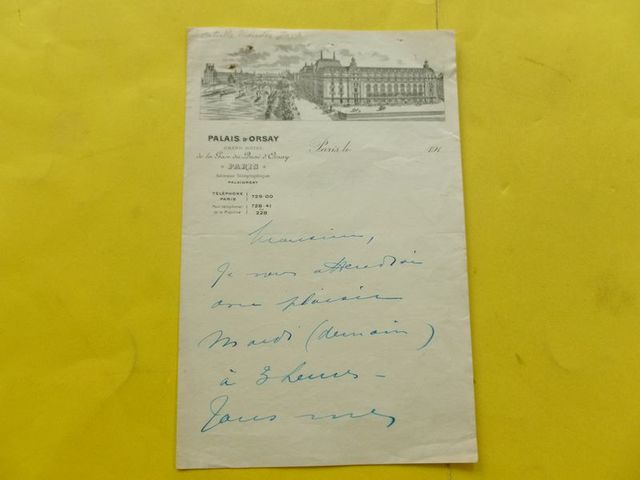 PALAIS D'ORSAY
GRAND HÔTEL
de la Gare du Quai d'Orsay
PARIS
Adresse Télégraphique
PALAIORSAY
TÉLÉPHONE PARIS 729-00
728-41
228
Paris le 191
Monsieur,
Je vous attendrai
avec plaisir
Mardi (demain)
à 3 heures -
Tous mes